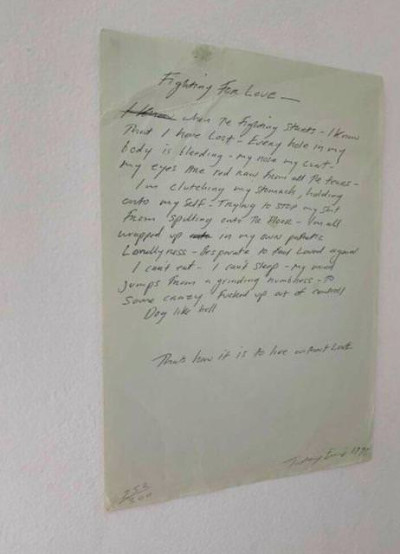 Fighting For Love —
when The fighting Starts - I know
That I have Lost - Every hole in my
body is bleeding - my nose my cunt -
my eyes are red raw from all The tears -
I'm clutching my stomach, holding
onto my self - Trying to stop my shit
From spilling onto The floor - I'm all
wrapped up in my own pathetic
Lonelyness - Desparate to feel Loved again
I can't eat - I can't sleep - my mind
jumps from a grinding numbness - To
Some crazy Fucked up out of control
Dog like hell
Thats how it is to live without Love
253
500
Tracey Emin 1998